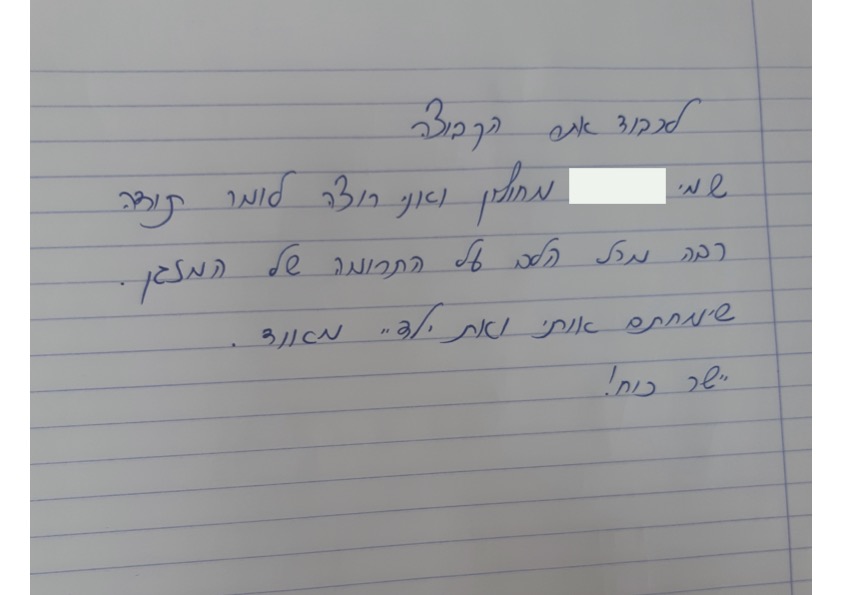 לכבוד אתם הקבוצה
שמי מחולון ואני רוצה לומר תודה
רבה מכל הלב על התרומה של המזגן.
שימחתם אותי ואת ילדיי מאוד.
יישר כוח!